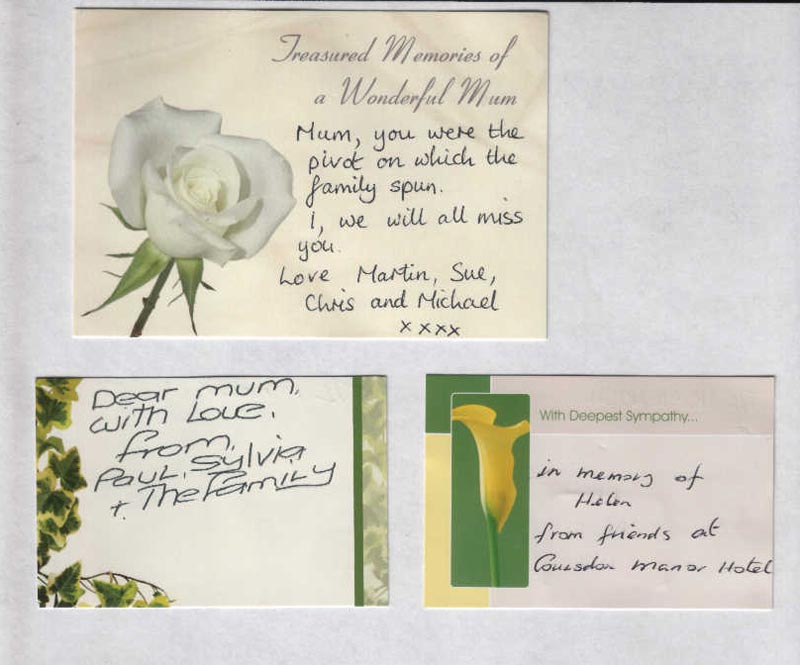 Treasured Memories of
a Wonderful Mum
Mum, you were the
pivot on which the
family spun.
I, we will all miss
you.
Love Martin, Sue,
Chris and Michael
xxxx
Dear mum,
with Love,
from,
Paul, Sylvia
+ The Family
With Deepest Sympathy...
in memory of
Helen
from friends at
Coulsdon Manor Hotel